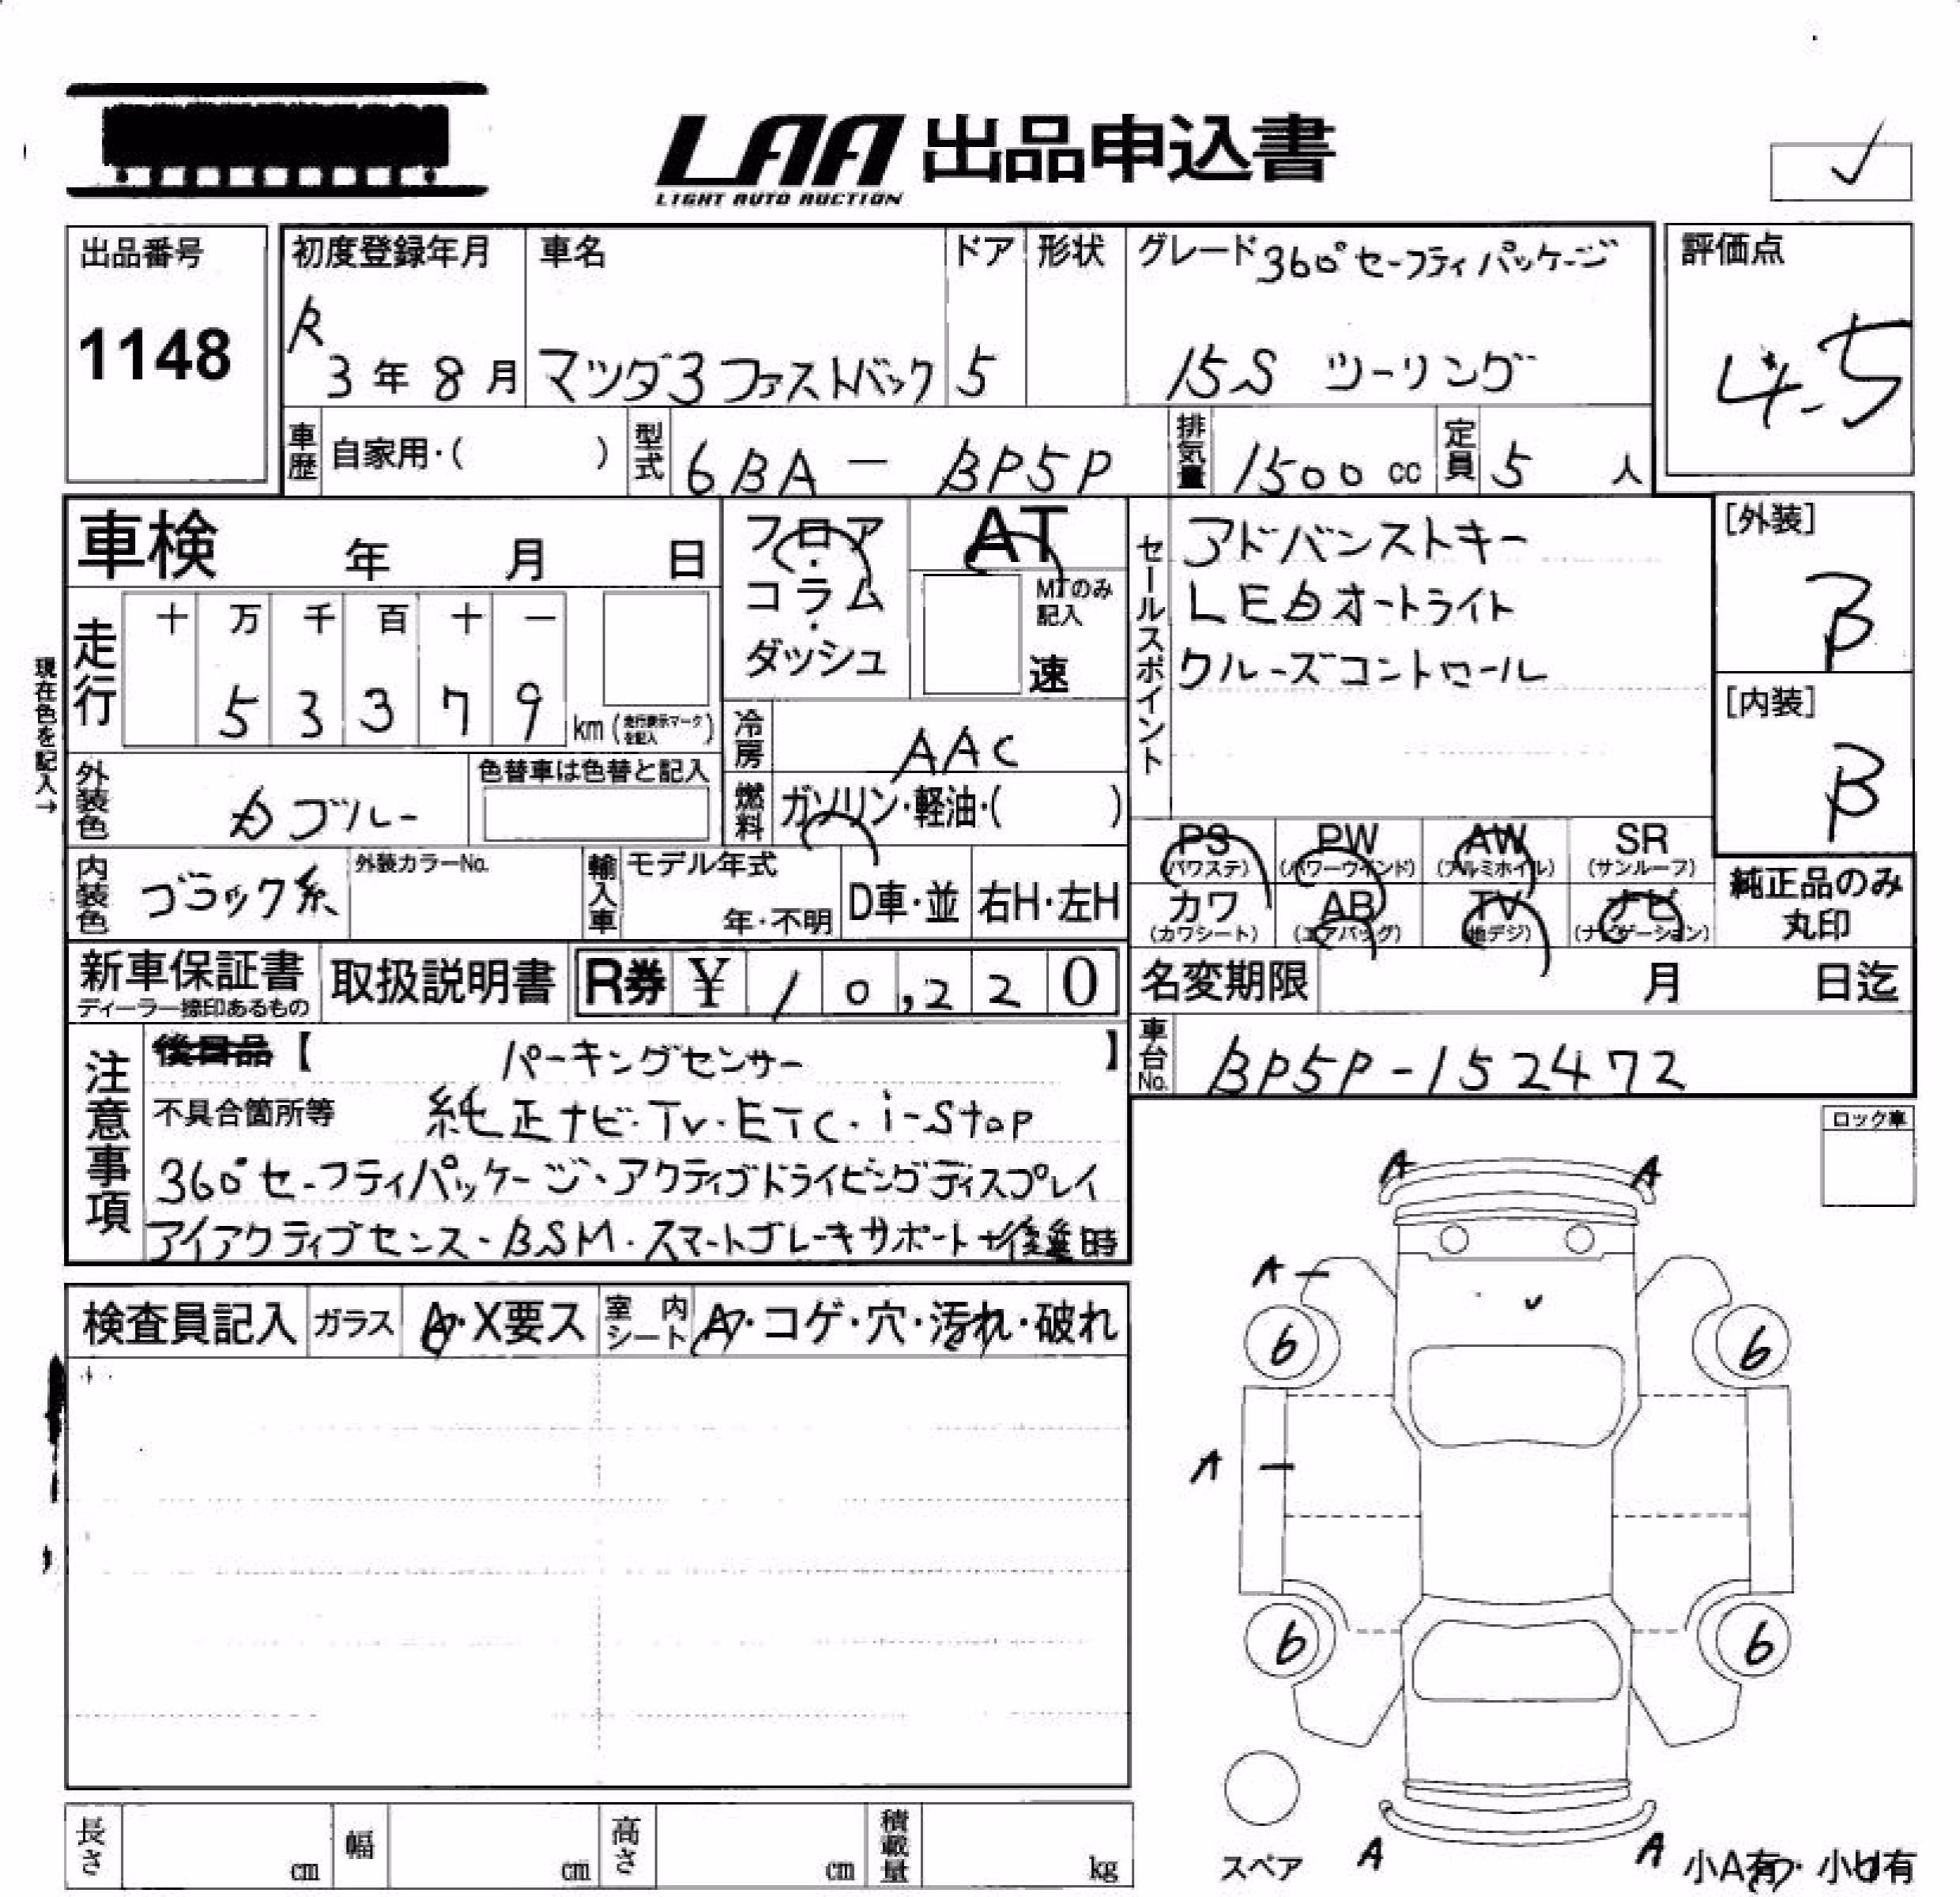 LAA 出品申込書
LIGHT AUTO AUCTION
出品番号
1148
初度登録年月
R
3年8月
車名
マツダ3ファストバック
ドア
5
形状
グレード 360°セーフティパッケージ
15S ツーリング
評価点
4.5
車歴 自家用・( )
型式 6BA − BP5P
排気量 1500 cc
定員 5 人
車検 年 月 日
フロア・コラム・ダッシュ
AT
MTのみ記入
速
セールスポイント
アドバンストキー
LEDオートライト
クルーズコントロール
[外装]
B
[内装]
B
現在色を記入→
走行
十 万 千 百 十 一
5 3 3 7 9
km (走行表示マークを記入)
冷房 AAC
燃料 ガソリン・軽油・( )
外装色
ブルー
色替車は色替と記入
内装色 ブラック系
外装カラーNo.
輸入車 モデル年式
年・不明
D車・並
右H・左H
PS (パワステ)
PW (パワーウインド)
AW (アルミホイル)
SR (サンルーフ)
カワ (カワシート)
AB (エアバッグ)
TV (地デジ)
ナビ (ナビゲーション)
純正品のみ
丸印
新車保証書
ディーラー捺印あるもの
取扱説明書
R券 ¥10,220
名変期限 月 日迄
車台No. BP5P-152472
注意事項
後日品【 パーキングセンサー 】
不具合箇所等 純正ナビ・TV・ETC・i-stop
360°セーフティパッケージ・アクティブドライビングディスプレイ
アイアクティブセンス・BSM・スマートブレーキサポート+後進時
ロック車
A A
A
6 6
A
6 6
A A
検査員記入
ガラス A・X要ス
室内シート A・コゲ・穴・汚れ・破れ
長さ cm
幅 cm
高さ cm
積載量 kg
スペア
小A有・小U有